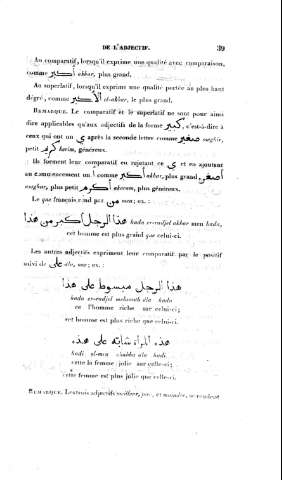 DE L'ADJECTIF. 39
Au comparatif, lorsqu'il exprime une qualité avec comparaison,
comme أكبر akbar, plus grand.
Au superlatif, lorsqu'il exprime une qualité portée au plus haut
dégré, comme الأكبر el-akbar, le plus grand.
REMARQUE. Le comparatif et le superlatif ne sont pour ainsi
dire applicables qu'aux adjectifs de la forme كبير, c'est-à-dire à
ceux qui ont un ي après la seconde lettre comme صغير
petit, كريم karim, généreux.
Ils forment leur comparatif en rejetant ce ي et en ajoutant
au commencement un أ comme أكبر akbar, plus grand, أصغر
asghar, plus petit, أكرم akram, plus généreux.
Le que français rend par من men; ex.:
هذا الرجل اكبر من هذا hada er-radjel akbar men hada,
cet homme est plus grand que celui-ci.
Les autres adjectifs expriment leur comparatif par le positif
suivi de على ala, sur; ex.:
هذا الرجل مبسوط على هذا
hada er-radjel mebsouth ala hada
ce l'homme riche sur celui-ci;
cet homme est plus riche que celui-ci.
هذه المرأة شابة على هذه
hadi el-mra chabba ala hadi
cette la femme jolie sur celle-ci;
cette femme est plus jolie que celle-ci.
REMARQUE. Les trois adjectifs meilleur, pire, et moindre, se rendent